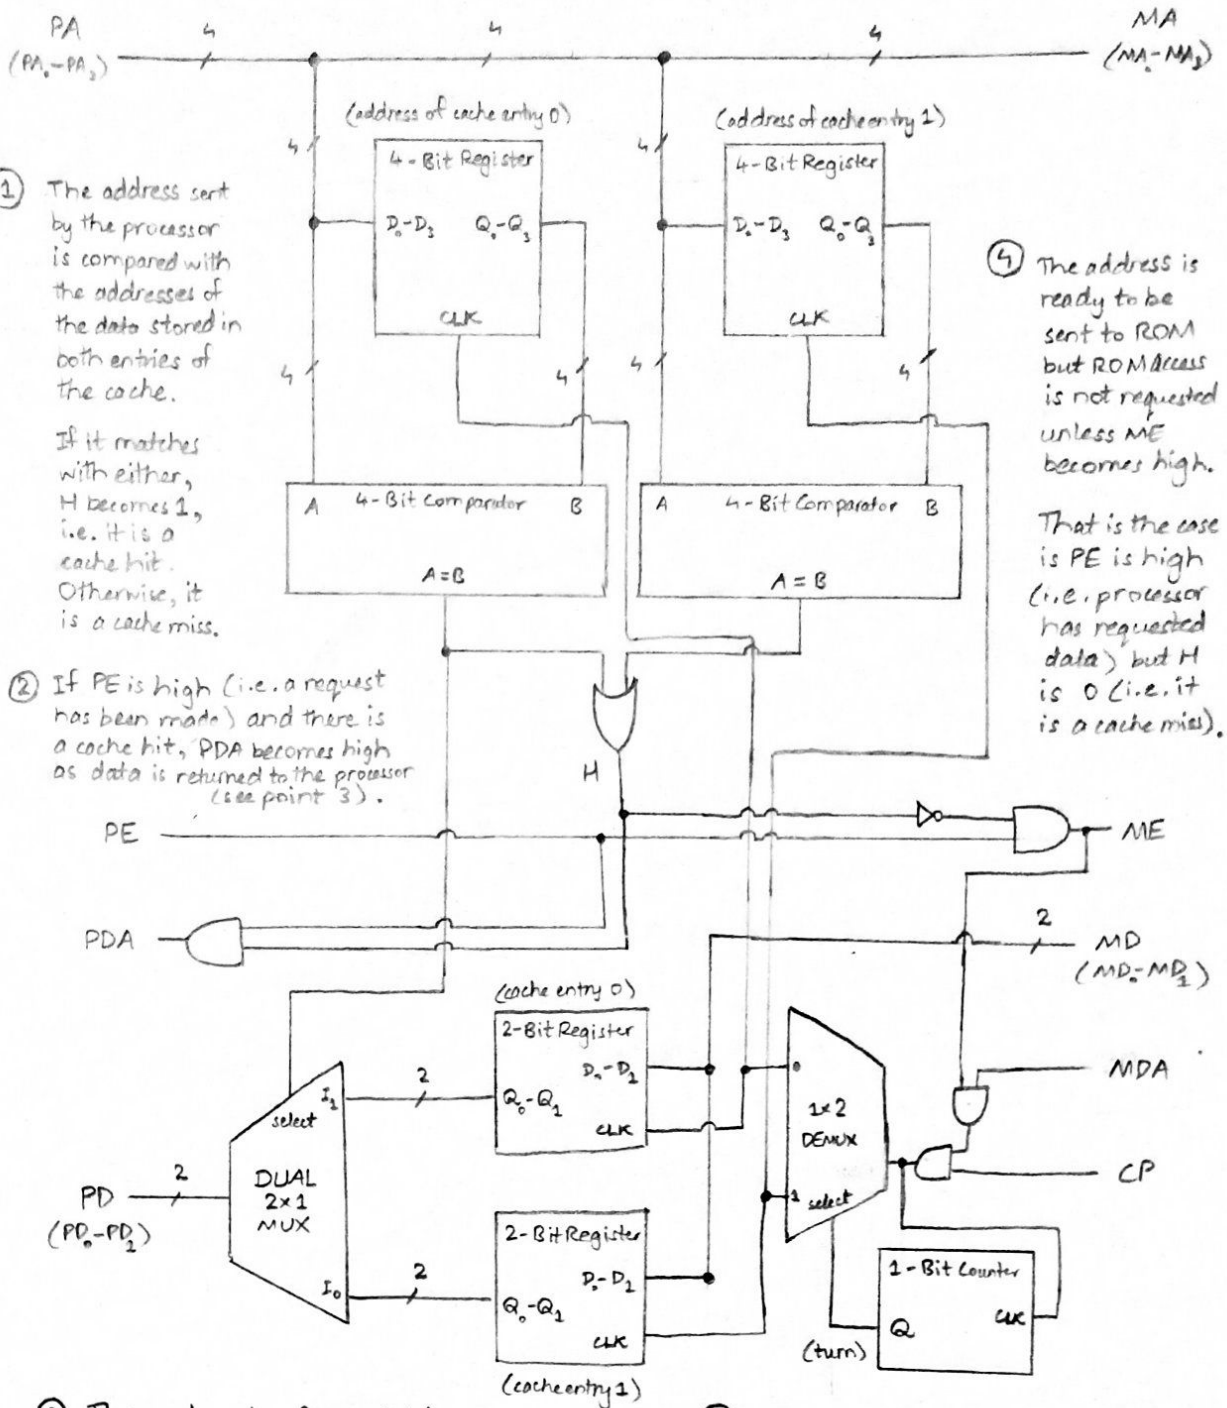 PA
(PA₀-PA₃)
4
4
4
MA
(MA₀-MA₃)
(address of cache entry 0)
(address of cache entry 1)
4
4
4-Bit Register
D₀-D₃ Q₀-Q₃
CLK
4-Bit Register
D₀-D₃ Q₀-Q₃
CLK
① The address sent
by the processor
is compared with
the addresses of
the data stored in
both entries of
the cache.
If it matches
with either,
H becomes 1,
i.e. it is a
cache hit.
Otherwise, it
is a cache miss.
④ The address is
ready to be
sent to ROM
but ROM access
is not requested
unless ME
becomes high.
That is the case
is PE is high
(i.e. processor
has requested
data) but H
is 0 (i.e. it
is a cache miss).
4
4
4
4
A 4-Bit Comparator B
A=B
A 4-Bit Comparator B
A=B
② If PE is high (i.e. a request
has been made) and there is
a cache hit, PDA becomes high
as data is returned to the processor
(see point 3).
H
PE
ME
PDA
2
MD
(MD₀-MD₁)
(cache entry 0)
2-Bit Register
D₀-D₁
Q₀-Q₁
CLK
2
I₁
select
DUAL
2x1
MUX
I₀
2
PD
(PD₀-PD₁)
2
(cache entry 1)
2-Bit Register
D₀-D₁
Q₀-Q₁
CLK
0
1x2
DEMUX
1
select
MDA
CP
1-Bit Counter
CLK
Q
(turn)